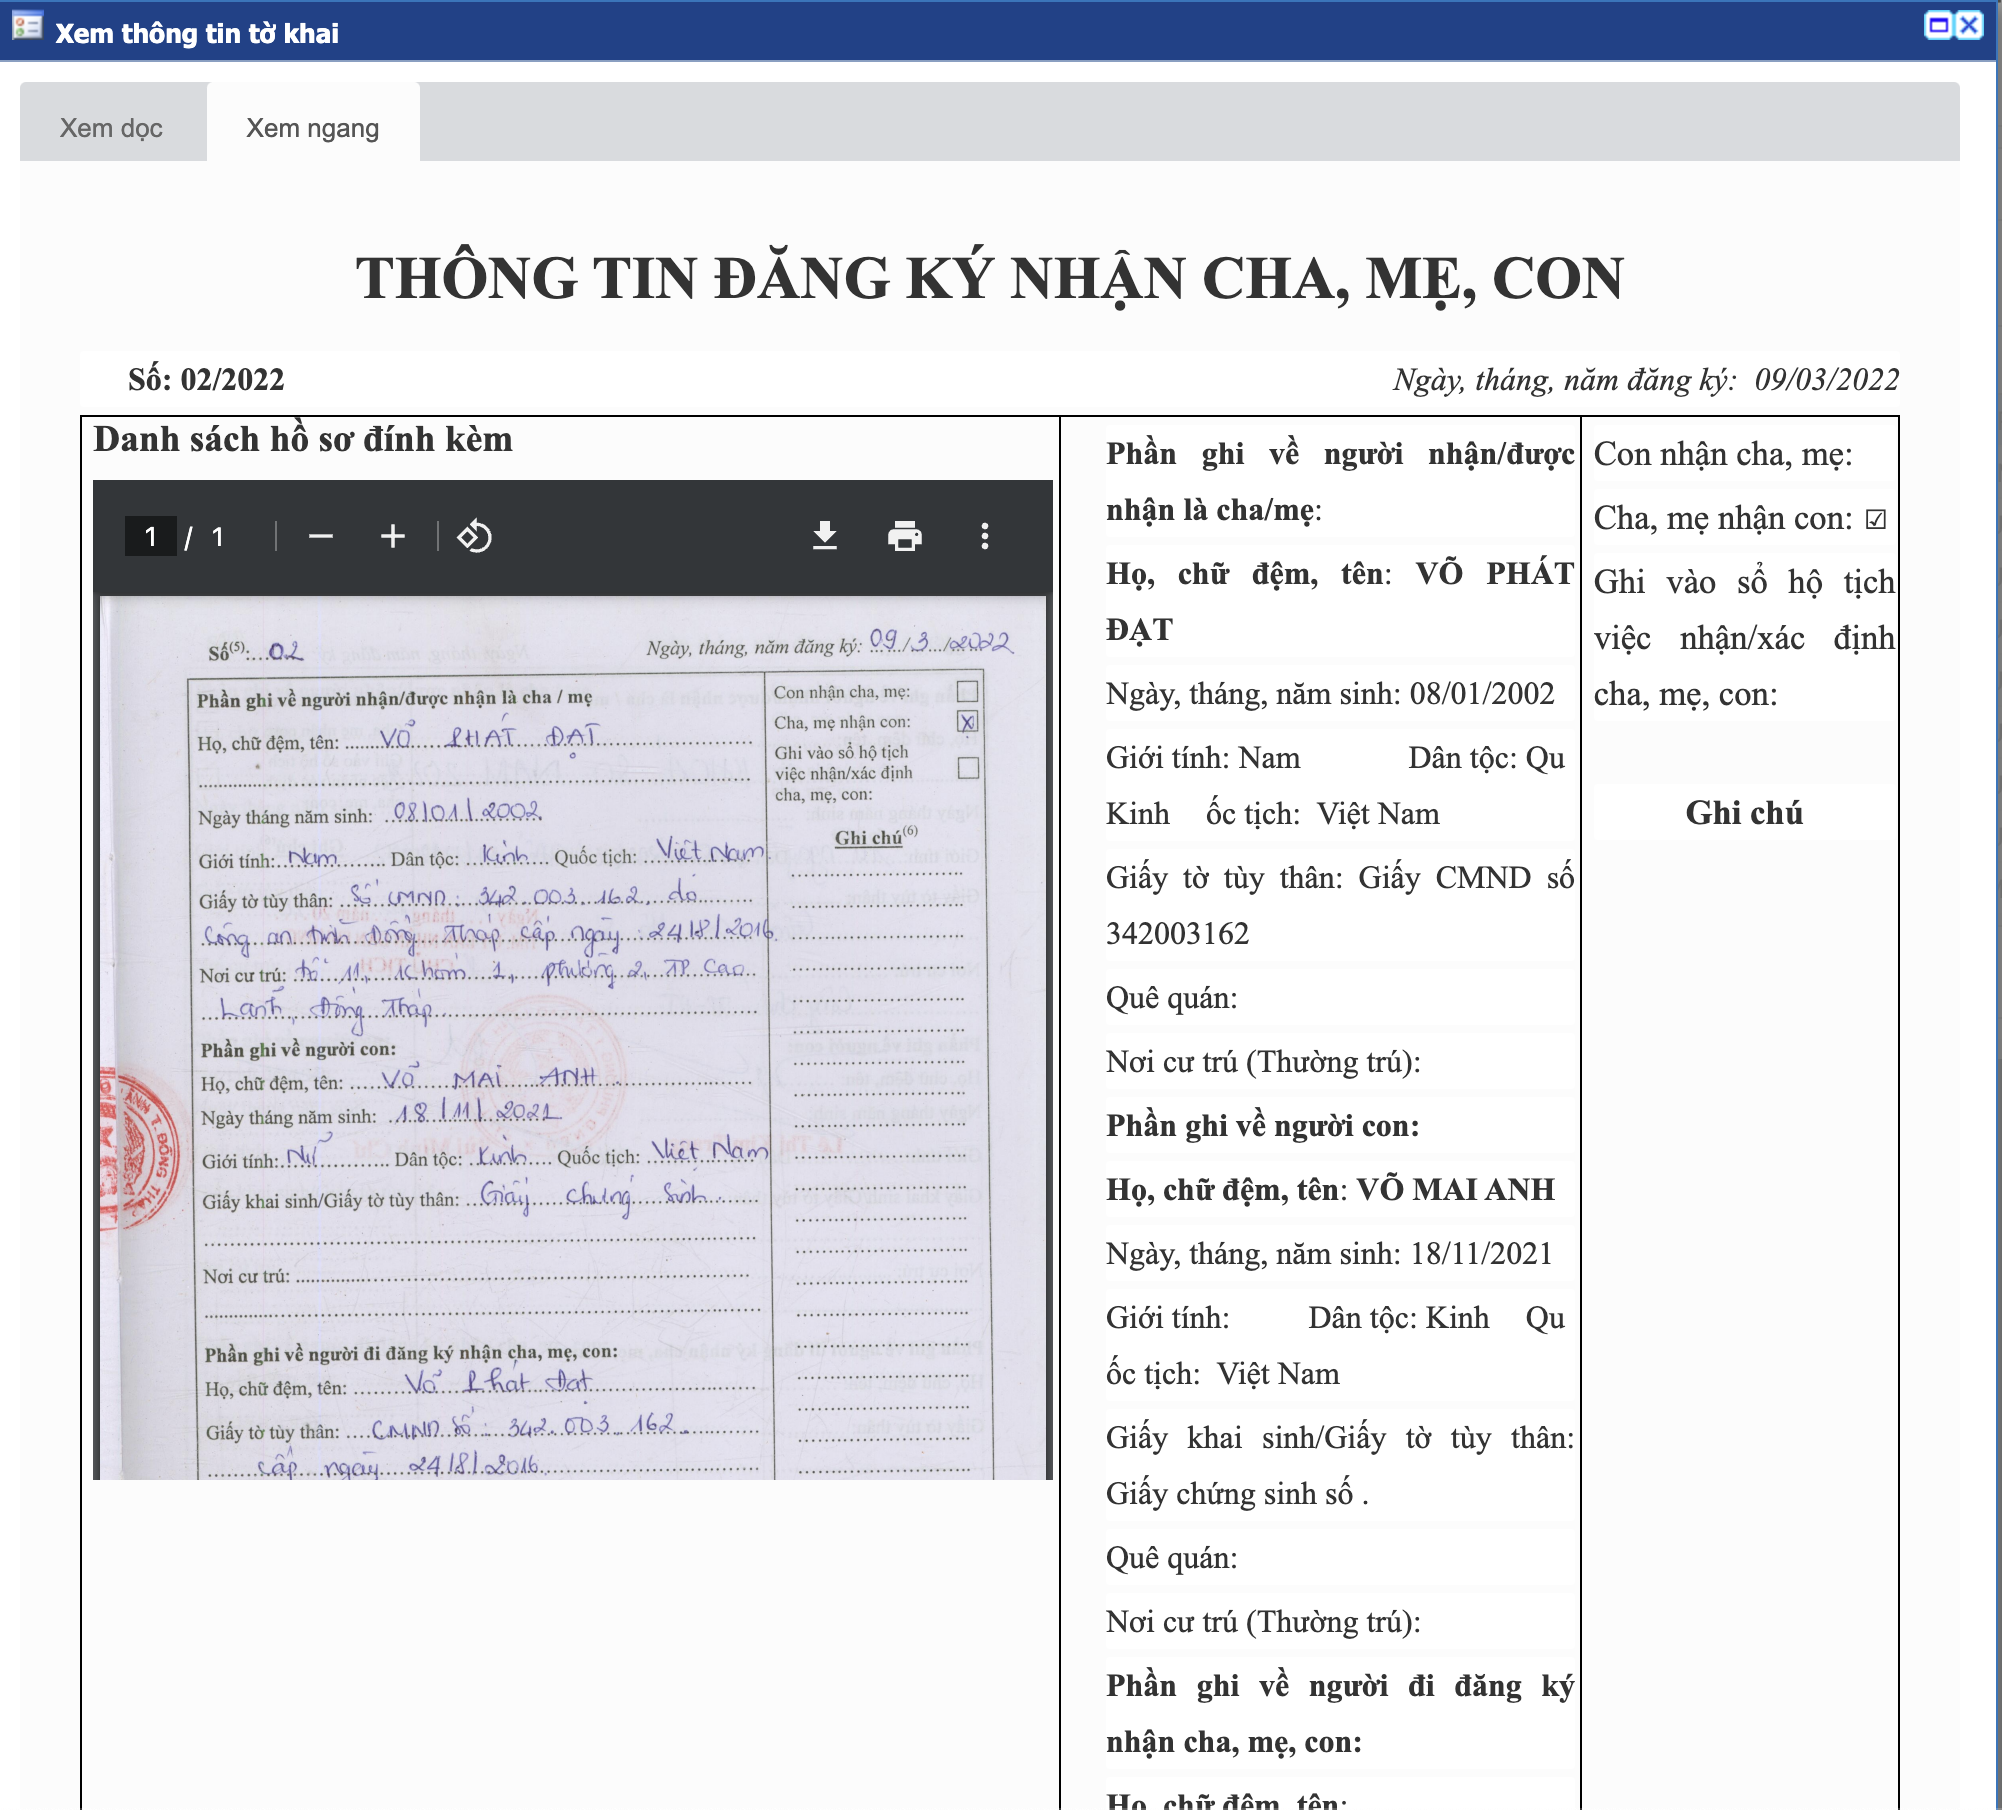 Xem thông tin tờ khai
Xem dọc
Xem ngang
THÔNG TIN ĐĂNG KÝ NHẬN CHA, MẸ, CON
Số: 02/2022
Ngày, tháng, năm đăng ký: 09/03/2022
Danh sách hồ sơ đính kèm
1 / 1
Số(5):...02
Ngày, tháng, năm đăng ký: 09/3/2022
Phần ghi về người nhận/được nhận là cha / mẹ
Họ, chữ đệm, tên: VÕ PHÁT ĐẠT
Ngày tháng năm sinh: 08/01/2002
Giới tính: Nam Dân tộc: Kinh Quốc tịch: Việt Nam
Giấy tờ tùy thân: Số CMND: 342.003.162, do
Công an tỉnh Đồng Tháp cấp ngày: 24/8/2016.
Nơi cư trú: tổ 11, khóm 1, phường 2, TP. Cao
Lãnh, Đồng Tháp.
Phần ghi về người con:
Họ, chữ đệm, tên: VÕ MAI ANH
Ngày tháng năm sinh: 18/11/2021
Giới tính: Nữ Dân tộc: Kinh Quốc tịch: Việt Nam
Giấy khai sinh/Giấy tờ tùy thân: Giấy chứng sinh
Nơi cư trú:
Phần ghi về người đi đăng ký nhận cha, mẹ, con:
Họ, chữ đệm, tên: Võ Phát Đạt
Giấy tờ tùy thân: CMND số: 342.003.162.
cấp ngày 24/8/2016.
Con nhận cha, mẹ:
Cha, mẹ nhận con: X
Ghi vào sổ hộ tịch
việc nhận/xác định
cha, mẹ, con:
Ghi chú(6)
Phần ghi về người nhận/được
nhận là cha/mẹ:
Họ, chữ đệm, tên: VÕ PHÁT
ĐẠT
Ngày, tháng, năm sinh: 08/01/2002
Giới tính: Nam Dân tộc: Qu
Kinh ốc tịch: Việt Nam
Giấy tờ tùy thân: Giấy CMND số
342003162
Quê quán:
Nơi cư trú (Thường trú):
Phần ghi về người con:
Họ, chữ đệm, tên: VÕ MAI ANH
Ngày, tháng, năm sinh: 18/11/2021
Giới tính: Dân tộc: Kinh Qu
ốc tịch: Việt Nam
Giấy khai sinh/Giấy tờ tùy thân:
Giấy chứng sinh số .
Quê quán:
Nơi cư trú (Thường trú):
Phần ghi về người đi đăng ký
nhận cha, mẹ, con:
Họ, chữ đệm, tên:
Con nhận cha, mẹ:
Cha, mẹ nhận con: ☑
Ghi vào sổ hộ tịch
việc nhận/xác định
cha, mẹ, con:
Ghi chú